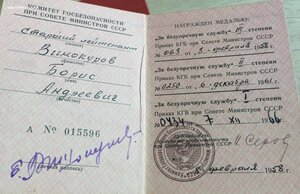 КОМИТЕТ ГОСБЕЗОПАСНОСТИ
ПРИ СОВЕТЕ МИНИСТРОВ СССР
старший лейтенант
Винокуров
(фамилия)
Борис
(имя)
Андреевич
(отчество)
А № 015596
(личная подпись)
НАГРАЖДЕН МЕДАЛЬЮ:
„За безупречную службу" III степени
Приказ КГБ при Совете Министров СССР
№ 063 8 февраля 1958 г.
„За безупречную службу" II степени
Приказ КГБ при Совете Министров СССР
№ 0250 6 декабря 1961 г.
„За безупречную службу" I степени
Приказ КГБ при Совете Министров СССР
№ 0434 7 XII 1966
Серов
февраля 1958 г.